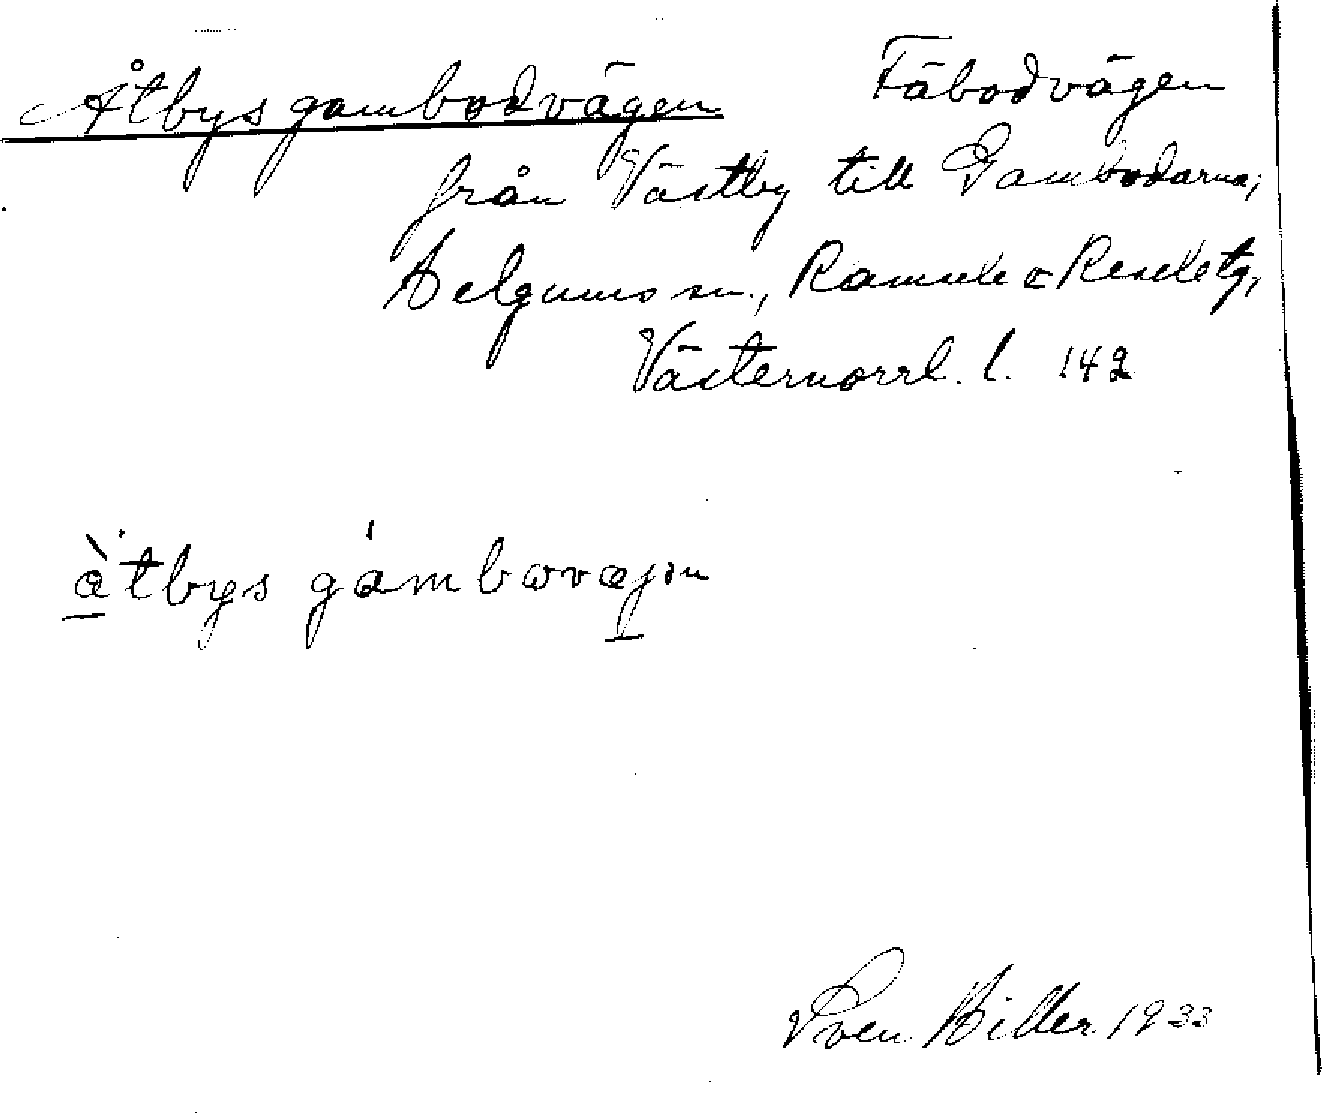 Åtbys gambodvägen Fäbodvägen
från Västby till Gambodarna,
Helgums sn., Ramsele o Resele tg,
Västernorrl. l. 142
àtbys gámbovæjən
Sven Hiller 1933